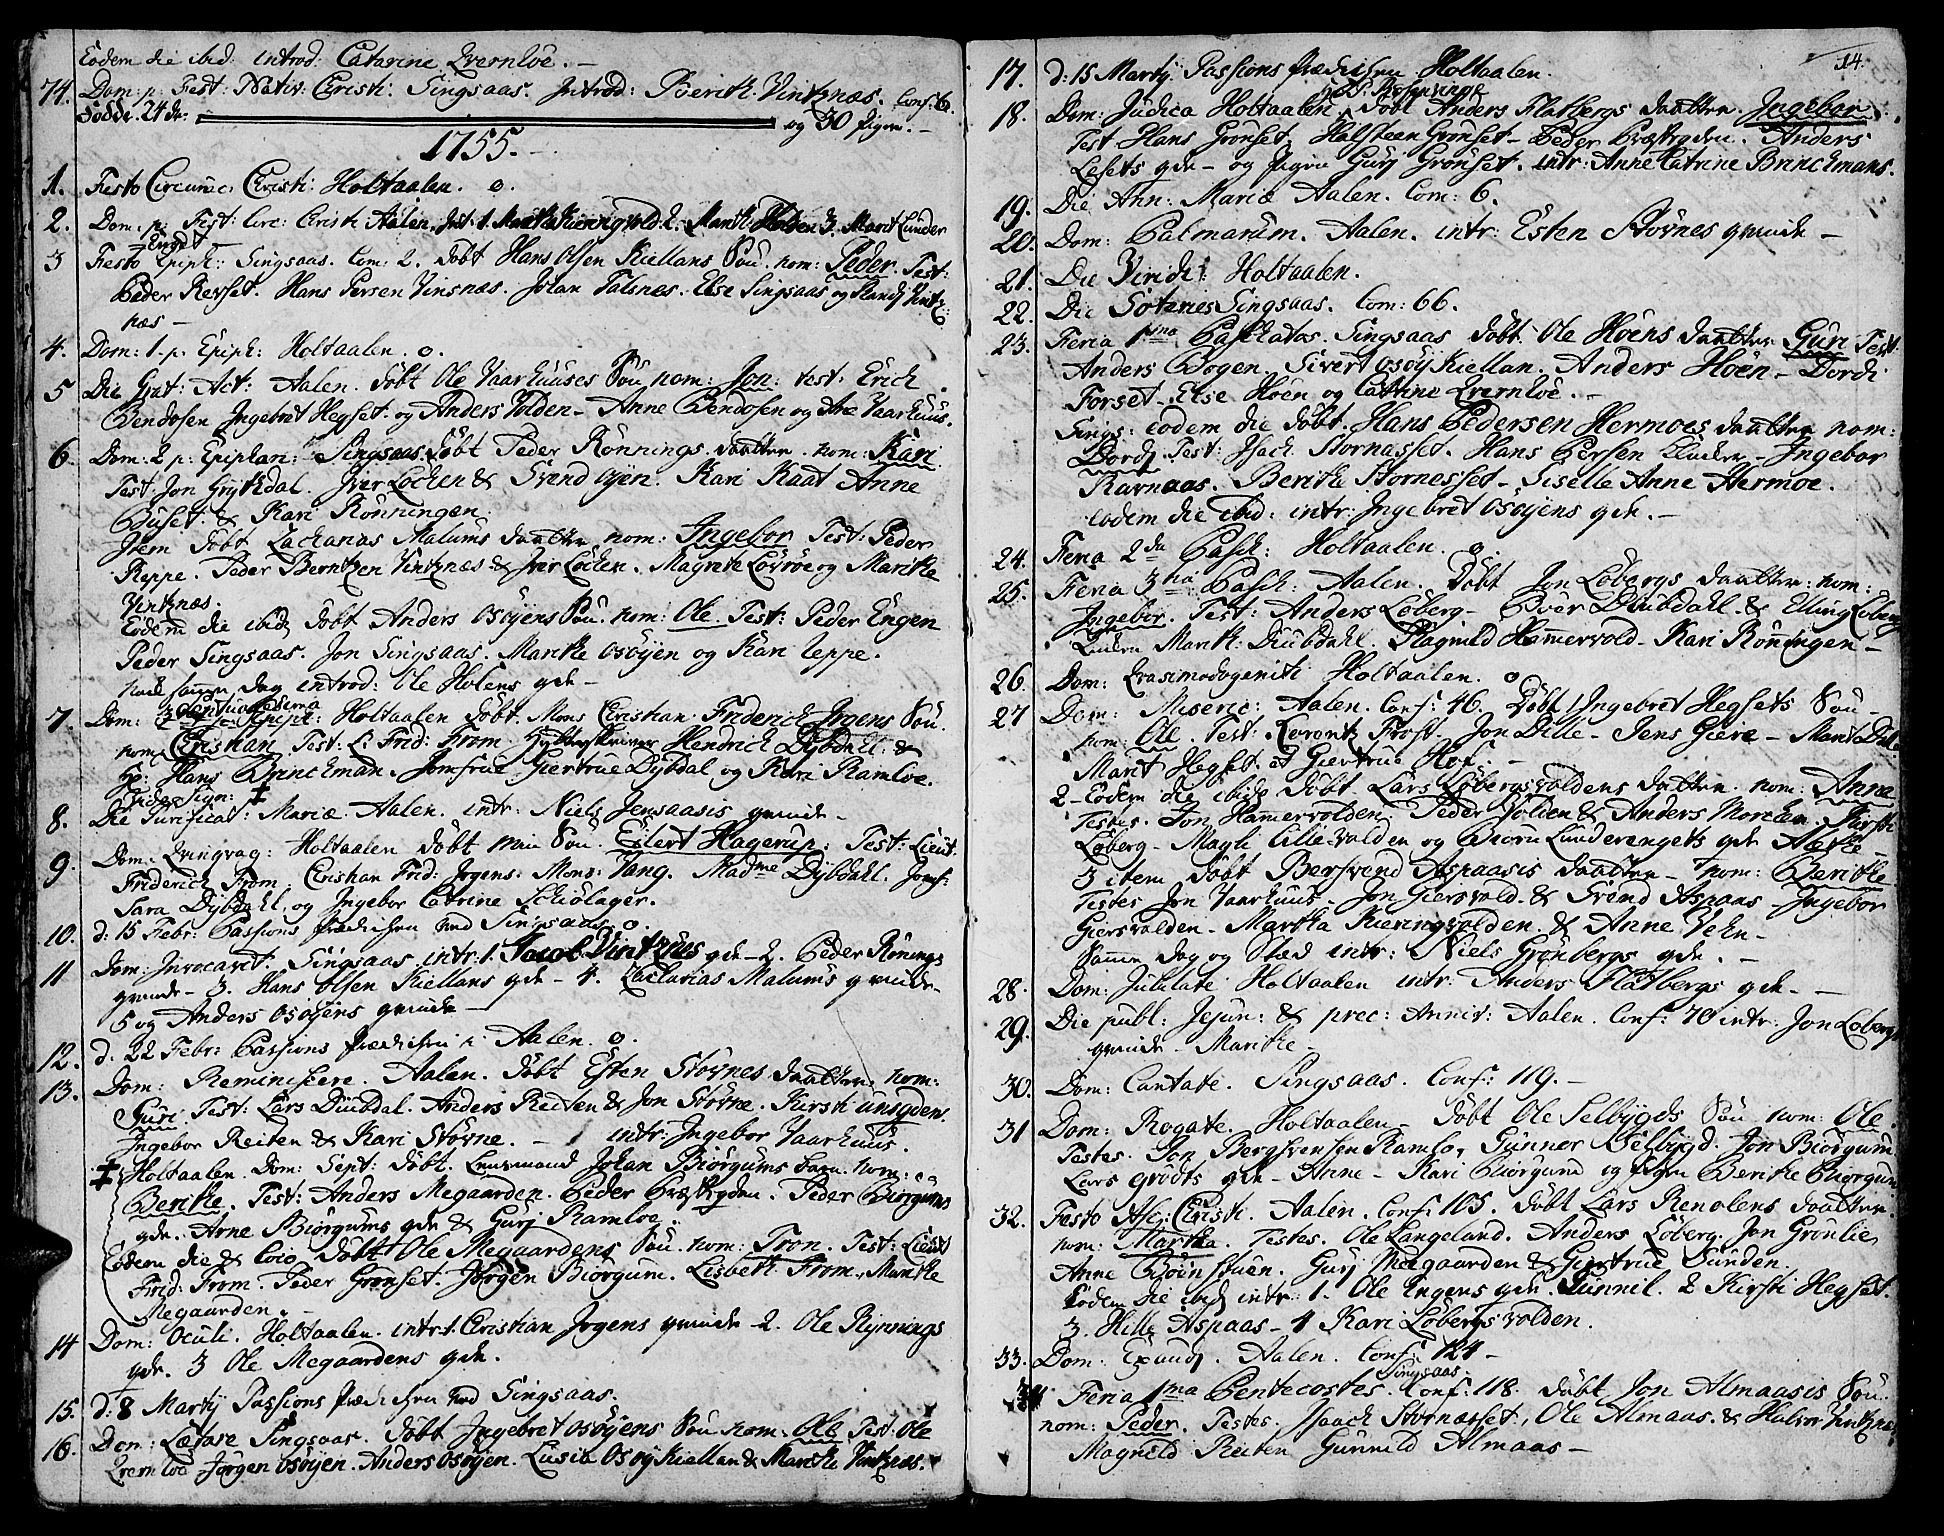 Eodem die ibid: introd: Catarine Qvernløe. –
74. Dom: p: Fest: Nativ: Christi. Singsaas. Introd: Berith Vintznæs. Conf: 6.
Födde. 24 dr. og 30 pigen. –
1755. –
1. Festo Circumc: Christi: Holtaalen. o.
2. Dom: p: Fest: Circ: Christi Aalen. Int: 1. Marit Kieringvold 2. Marit Holden 3. Marit Lunder
Enget –
3 Festo Epiph: Singsaas. Com: 2. döbt Hans Olsen Kiellans Sön nom: Peder Test:
Peder Reitset. Hans Persen Vinsnæs. Johan Talsnes. Else Singsaas og Vintz:
næs –
4. Dom: 1. p. Epiph: Holtaalen. o.
5 Die Grat: Act: Aalen. döbt Ole Vaarhuuses Sön nom: Jon: test: Erich
Bendosen Ingebret Hegset. og Anders Volden – Anne Bendosen og Ane Vaarhuus.
6. Dom: 2 p: Epiphan: Singsaas döbt Peder Rönnings daatter nom: Kari
Test: Jon Grytdal. Iver Løchen & Svend öyen. Kari Kaat Anne
Buset & Kari Rönningen.
Item döbt Zacharias Malums daatter nom: Ingebor Test: Peder
Reppe. Peder Berntzen Vintznæs & Iver Løchen. Magrete Løvröe og Maritke
Vintznæs.
Eodem die ibid döbt Anders Osöyens Sön. nom: Ole. Test: Peder Engen
Peder Singsaas. Jon Singsaas. Maritke Osöyen og Kari Reppe.
samme dag introd: Ole Holens qde –
Septuagesima
7. Dom: Epiph: Holtaalen döbt Mons Christian Friderich Jrgens Sön.
nom: Christian Test: L: Frid: From Hendrich Dybdahl &
Hr: Hans Brinchman. Jomfrue Giertrue Dybdal og Kari Ramloe.
8. Die Purificat: Mariæ Aalen. intr: Niels Jensaasis qvinde –
9. Dom. Qvinqvag: Holtaalen döbt min Sön. Eilert Hagerup: Test: Lieut.
Friderich From, Christian Frid: Jrgens: Mons: Vang. Madme Dybdahl. Jomf:
Sara Dybdahl, og Ingebor Catrine Schiölager.
10. d: 15 Febr: Passions prædichen ved Singsaas. o.
11 Dom: Invocavit Singsaas intr: 1. Jacob Vintznes qde – 2. Peder Rönings
qvinde – 3. Hans Olsen Kiellans qde – 4. Zacharias Malums qvinde
5 og Anders Osöyens qvinde –
12. d: 22 Febr: Passions prædichen i Aalen. o.
13. Dom: Reminiscere. Aalen. döbt Esten Störnes daatter nom:
Guri. Test: Lars Diubdal. Anders Reiten & Jon Störne. Kirsti
Ingebor Reiten & Kari Störne. – intr: Ingebor Vaarhuus.
‡ Holtaalen Dom: Sept: döbt Lensmand Johan Biörgums barn nom:
Beritke. Test: Anders Megaarden. Peder Peder Biörgums
qde. Arne Biörgums qde & Gurj Ramloe.
Eodem die & loco döbt Ole Megaardens Sön. nom: Tron. Test: Lieut
Frid: From. Peder Grönset. Jörgen Biörgum. Lisbeth From. Maritke
Megaarden. –
14 Dom: Oculi. Holtaalen. intr: 1. Christian Jrgens qvinde – 2. Ole Rynnings
qde. 3 Ole Megaardens qde.
15. d: 8 Martij Passions prædichen ved Singsaas.
16. Dom: Lætare Singsaas. döbt Ingebret Osöyens Sön nom: Ole Test: Ole
Qvernloe Jörgen Osöyen. Anders Osöyen. Lusia Osöy Kiellan & Maritke Vintznæs.
14.
17. d: 15 Martij. Passions prædichen Holtaalen.
18. Dom: Judica Holtaalen. döbt Anders Flatbergs daatter. Ingebor:
Test Hans Grönset. Halsteen Grönset – Peder Anders
Lesets qde – og pigen Gurj Grönset. intr: Anne Catrine Brinchmans.
19. Die Ann: Mariæ Aalen. Com: 6.
20. Dom: Palmarum. Aalen. intr: Esten Störnes qvinde –
21. Die Viridi: Holtaalen.
22. Die Singsaas. Com: 66.
23. Feria 1ma Paschatos. Singsaas döbt Ole Höens daatter Guri Test:
Anders Bogen. Sivert Osöy Kiellan. Anders Höen – Dordi
Forset. Else Höen og Cattrine Qvernloe. –
Sings: eodem die döbt. Hans Pedersen Hermoes daatter nom:
Dordj. Test: Isach Stornæsset. Hans Persen – Ingebor
Ravnaas. Beritke Stornesset – Giselle Anne Hermoe.
Eodem die ibid: intr: Ingebret Osöyens qde. –
24. Feria 2da Pasch: Holtaalen. o.
25. Feria 3tia Pasch: Aalen. döbt Jon Löbergs daatter: nom:
Ingebor. Test: Anders Löberg – Diubdahl & Elling Löberg
Marit Diubdahl. Magnild Hammervold – Kari Röningen –
26. Dom: Qvasimodogeniti Holtaalen. o
27 Dom: Miseric: Aalen. Conf: 46. Döbt 1 Ingebret Hegsets Sön –
nom: Ole. Test: Lorentz Frost. Jon Dille – Jens Giere – Marit Dille
Marit Hegset et Giertrue Hof. –
2 – Eodem die ibid döbt Lars Löbergsvoldens daatter nom: Anne
Testes. Jon Hamervolden. Peder Volden & Anders Morchen. Kirsti
Löberg – Magli Lillevolden og Lunderengets qde
3 item döbt Bersvend Aspaasis daatter – nom: Beritke
Testes Jon Vaarhuus – Jon Giersvold. & Svend Aspaas – Ingebor
Giersvolden – Maritka Kieringvolden. & Anne Vehn –
Samme dag og Stæd intr: Niels Grönbergs qde. –
28. Dom: Jubilate Holtaalen intr: Anders Flatbergs qde. –
29. Die publ: Jejun: & prec: Annis: Aalen. Conf: 70 intr: Jon Lobergs
qvinde – Maritke –
30. Dom: Cantate. Singsaas. Conf: 119. –
31 Dom: Rogate. Holtaalen – döbt Ole Selbygds Sön nom: Ole.
Testes. Jon Bergsvensen Ramlo, Gunner Selbygd. Jon Biörgum
Lars Grööts qde – Anne – Kari Biörgum og pigen Beritke Biörgum
32. Festo Asc: Christi. Aalen. Conf: 105. döbt Lars Renolens daatter.
nom: Maritka. Testes. Ole Langeland. Anders Löberg. Jon Grönlie,
Anne Biöenstuen. Gurj Megaarden & Giertrue Sunden.
Eodem die ibid intr: 1. Ole Engens qde. Gunnil. 2 Kirsti Hegset.
3. Hille Aspaas – 4 Kari Löbergsvolden.
33. Dom: Exaudj. Aalen. Conf: 124 –
Singsaas.
34 Feria 1ma Pentecostes. Conf: 118. döbt Jon Almaasis Sön.
nom: Peder. Testes. Isaach Stornæsset, Ole Almaas. & Halvor Vintznæs,
Magnild Reiten Gunnild Almaas –